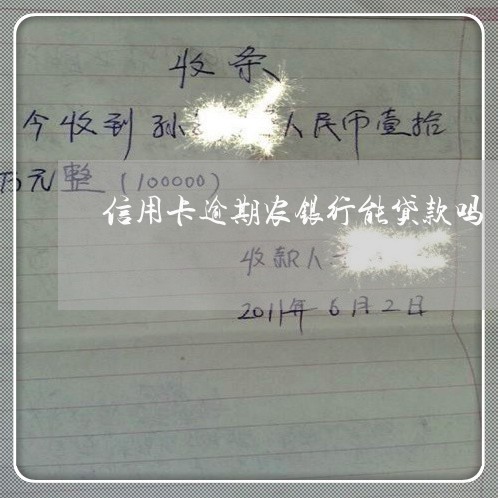 收条
今收到孙 人民币壹拾
万元整（100000）
信用卡逾期农银行能贷款吗
收款人
2011年6月2日